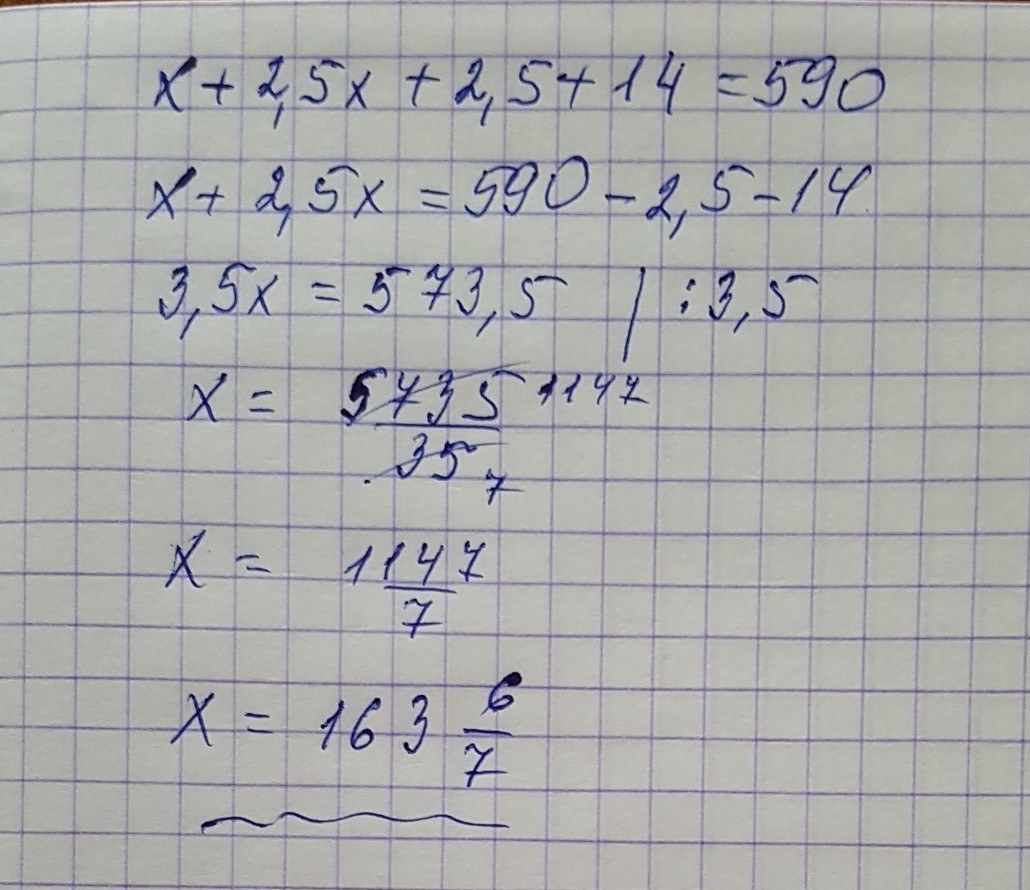 x + 2,5x + 2,5 + 14 = 590
x + 2,5x = 590 - 2,5 - 14
3,5x = 573,5 | : 3,5
x = 5735/35 1147 7
x = 1147/7
x = 163 6/7